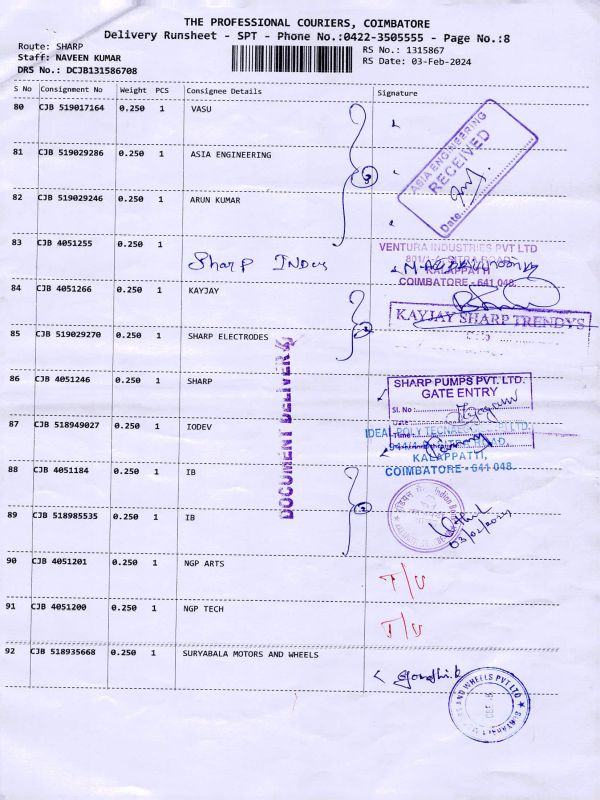 THE PROFESSIONAL COURIERS, COIMBATORE
Delivery Runsheet - SPT - Phone No.:0422-3505555 - Page No.:8
Route: SHARP
RS No.: 1315867
Staff: NAVEEN KUMAR
RS Date: 03-Feb-2024
DRS No.: DCJB131586708
S No Consignment No Weight PCS Consignee Details Signature
80 CJB 519017164 0.250 1 VASU
81 CJB 519029286 0.250 1 ASIA ENGINEERING
ASIA ENGINEERING
RECEIVED
Date
82 CJB 519029246 0.250 1 ARUN KUMAR
83 CJB 4051255 0.250 1
Sharp Indus
VENTURA INDUSTRIES PVT LTD
KALAPPATTI
COIMBATORE - 641 048.
84 CJB 4051266 0.250 1 KAYJAY
KAYJAY SHARP TRENDYS
85 CJB 519029270 0.250 1 SHARP ELECTRODES
DOCUMENT DELIVERY
86 CJB 4051246 0.250 1 SHARP
SHARP PUMPS PVT. LTD.
GATE ENTRY
Sl. No :
Date :
Time :
87 CJB 518949027 0.250 1 IODEV
KALAPPATTI,
COIMBATORE - 641 048.
88 CJB 4051184 0.250 1 IB
89 CJB 518985535 0.250 1 IB
03/02/2024
90 CJB 4051201 0.250 1 NGP ARTS
T/U
91 CJB 4051200 0.250 1 NGP TECH
T/U
92 CJB 518935668 0.250 1 SURYABALA MOTORS AND WHEELS
AND WHEELS PVT LTD